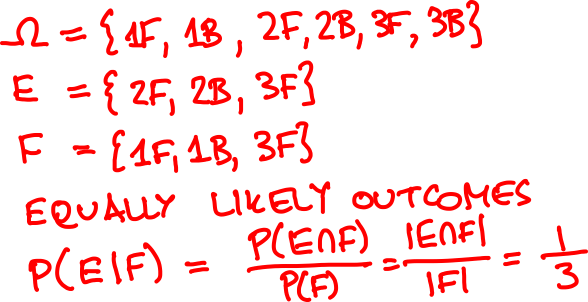 Ω = {1F, 1B, 2F, 2B, 3F, 3B}
E = {2F, 2B, 3F}
F = {1F, 1B, 3F}
EQUALLY LIKELY OUTCOMES
P(E|F) = P(E∩F)/P(F) = |E∩F|/|F| = 1/3